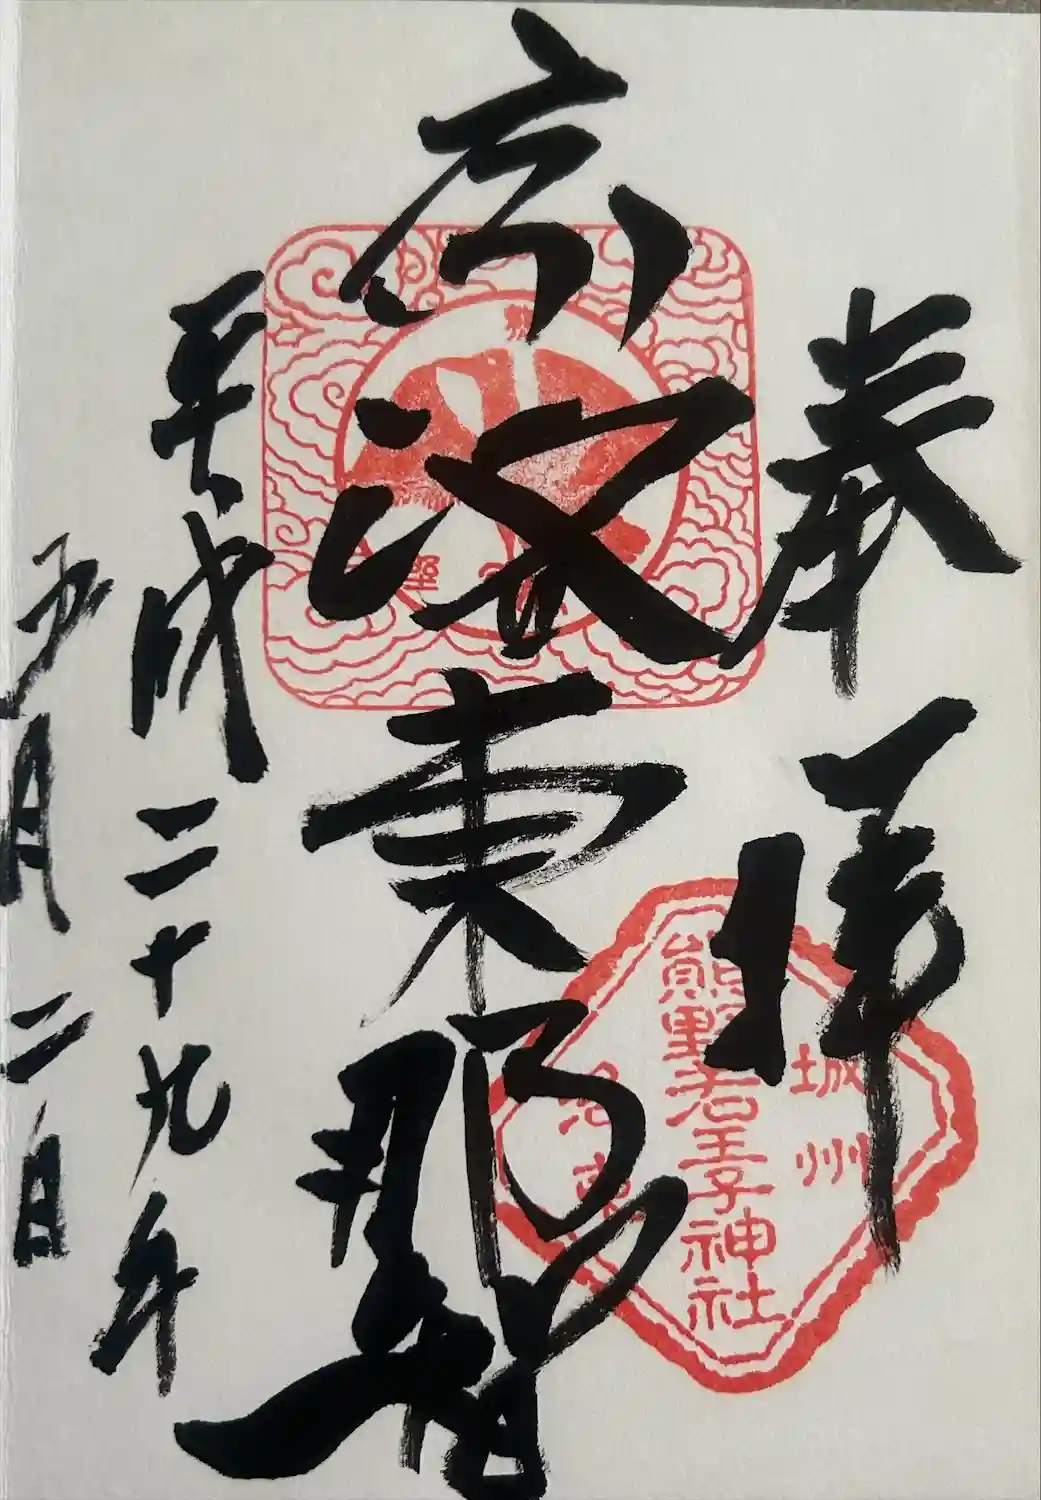 奉拝
京洛東那智
平成二十九年
五月二日
城州
熊野若王子神社
洛東